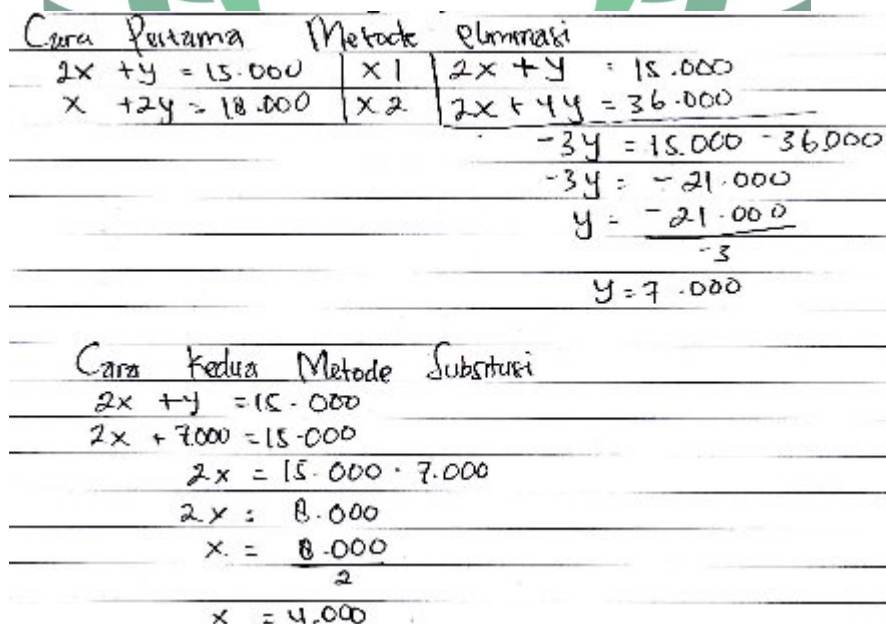 Cara Pertama Metode eliminasi
2x + y = 15.000 | x 1 | 2x + y = 15.000
x + 2y = 18.000 | x 2 | 2x + 4y = 36.000
-3y = 15.000 - 36.000
-3y = -21.000
y = -21.000
-3
y = 7.000
Cara Kedua Metode Substitusi
2x + y = 15.000
2x + 7.000 = 15.000
2x = 15.000 - 7.000
2x = 8.000
x = 8.000
2
x = 4.000